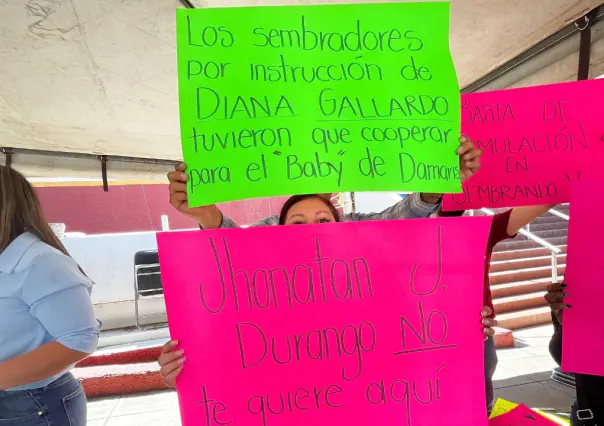 Los sembradores
por instrucción de
DIANA GALLARDO
tuvieron que cooperar
para el "Baby" de Damaris
DE
MULACIÓN
EN
Jhonatan J.
Durango NO
te quiere aquí